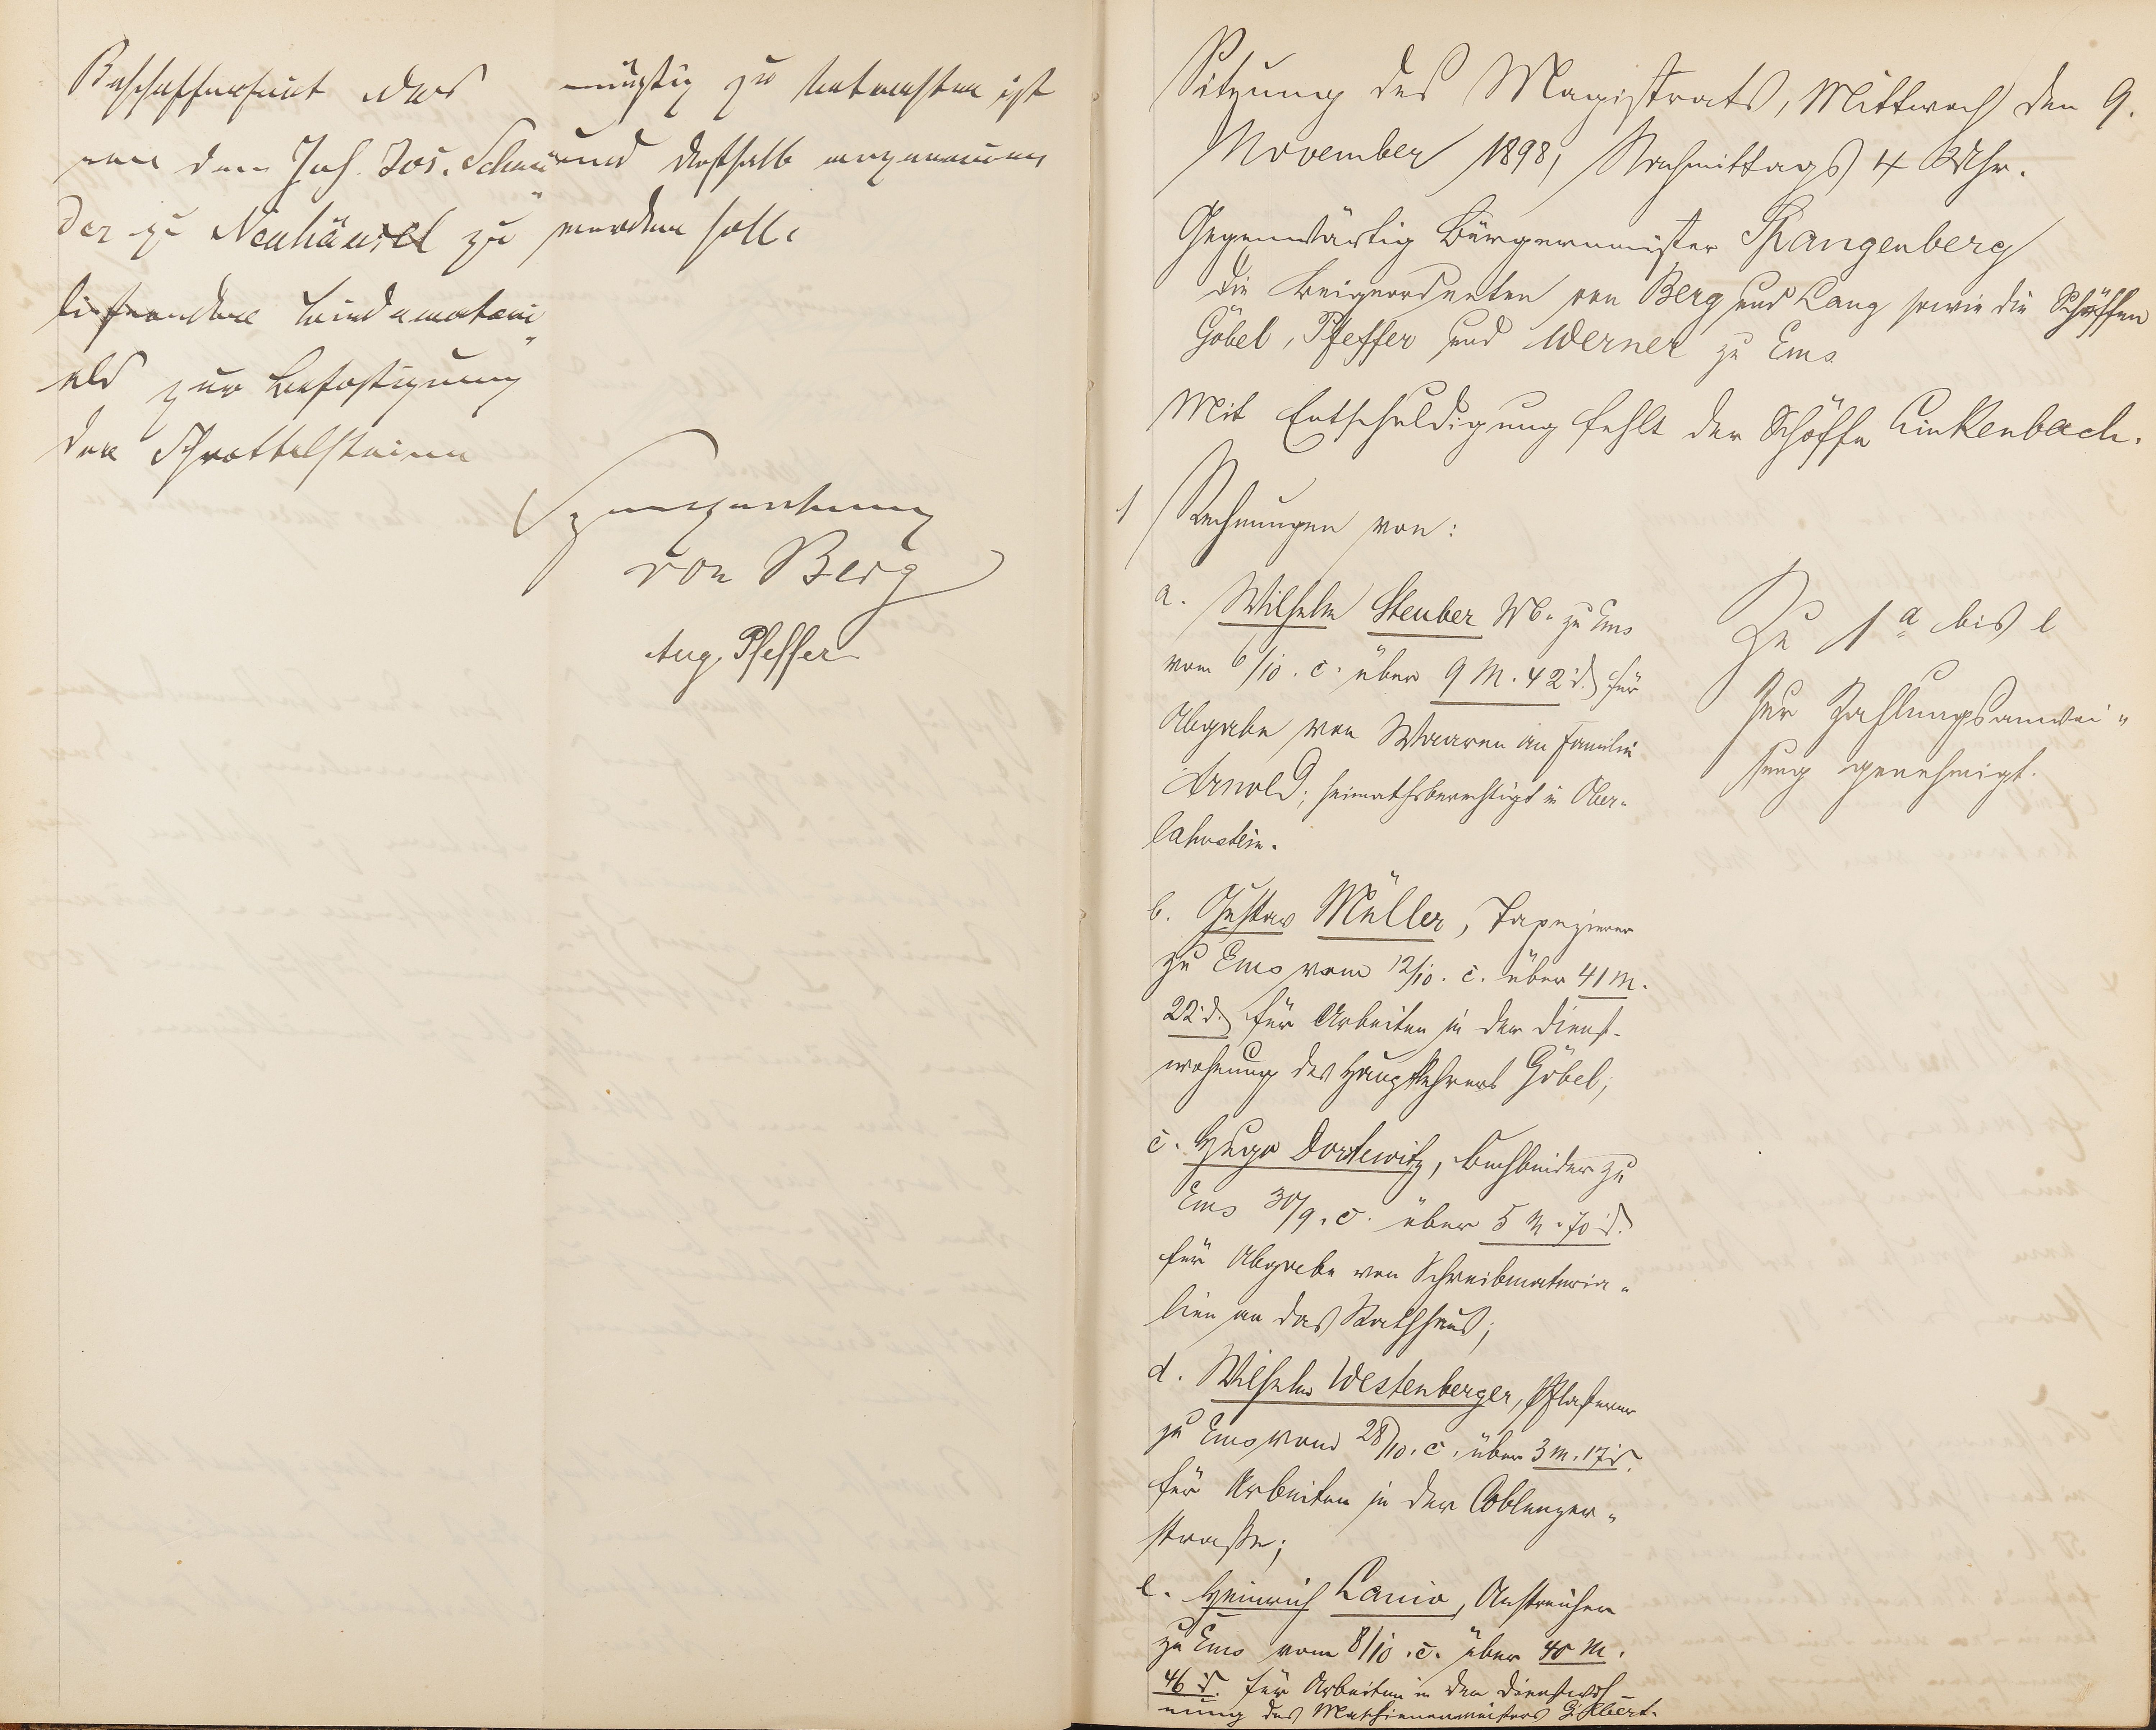 Beschaffenheit des
von dem Joh. Jos. Schnei„
der zu Neuhäusel zu
liefernden Bindemateri„
als zur Befestigung
der Schrottelsteine
günstig zu betrachten ist
und deshalb angenommen
werden soll.
Spangenberg
von Berg
Aug. Pfeffer
Sitzung des Magistrats, Mittwoch den 9.
November 1898, Nachmittags 4 Uhr.
Gegenwärtig Bürgermeister Spangenberg
die Beigeordneten von Berg und Lang sowie die Schöffen
Göbel, Pfeffer und Werner zu Ems
Mit Entschuldigung fehlt der Schöffe Linkenbach.
1 Rechnungen von:
a. Wilhelm Steuber Wb. zu Ems
vom 6/10. c. über 9 M. 42 d. für
Abgabe von Waaren an Familie
Arnold; heimathsberechtigt in Ober-
lahnstein.
b. Gustav Müller, Tapezierer
zu Ems vom 12/10. c. über 41 M.
22 d. für Arbeiten in der Dienst-
wohnung des Hauptlehrers Göbel;
c. Hugo Dorlewitz, Buchbinder zu
Ems 30/9. c. über 5 M. 70 d.
für Abgabe von Schreibmateria„
lien an das Rathhaus;
d. Wilhelm Westenberger, Pflasterer
zu Ems vom 28/10. c. über 3 M. 17 d.
für Arbeiten in der Coblenzer„
strasse;
e. Heinrich Lanio, Anstreicher
zu Ems vom 8/10. c. über 40 M.
46 d. für Arbeiten in der Dienstwoh„
nung des Maschinenmeisters
Zu 1 a bis e
Zur Zahlungsanwei„
sung genehmigt.